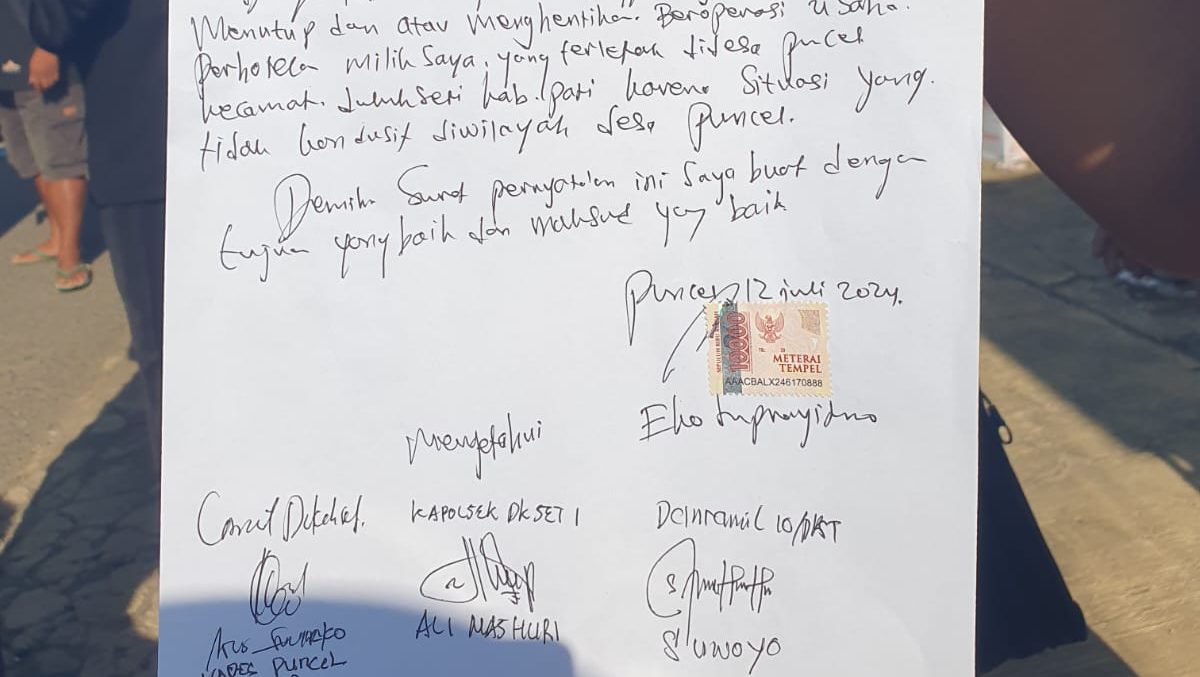 Menutup dan atau menghentikan. Beroperasi usaha.
perhotelan milik saya, yang terletak didesa puncel
kecamat. dukuhseti kab. pati karena situasi yang.
tidak kondusif diwilayah desa puncel.
Demikian Surat pernyataan ini saya buat dengan
tujuan yang baik dan maksud yang baik
Puncel, 12 juli 2024.
10000
METERAI
TEMPEL
AAACBALX246170888
Eko Suprayitno
Mengetahui
Camat Dukuhseti. KAPOLSEK DKSETI Danramil 10/DKT
ALI MASHURI
Suwoyo
KADES PUNCEL